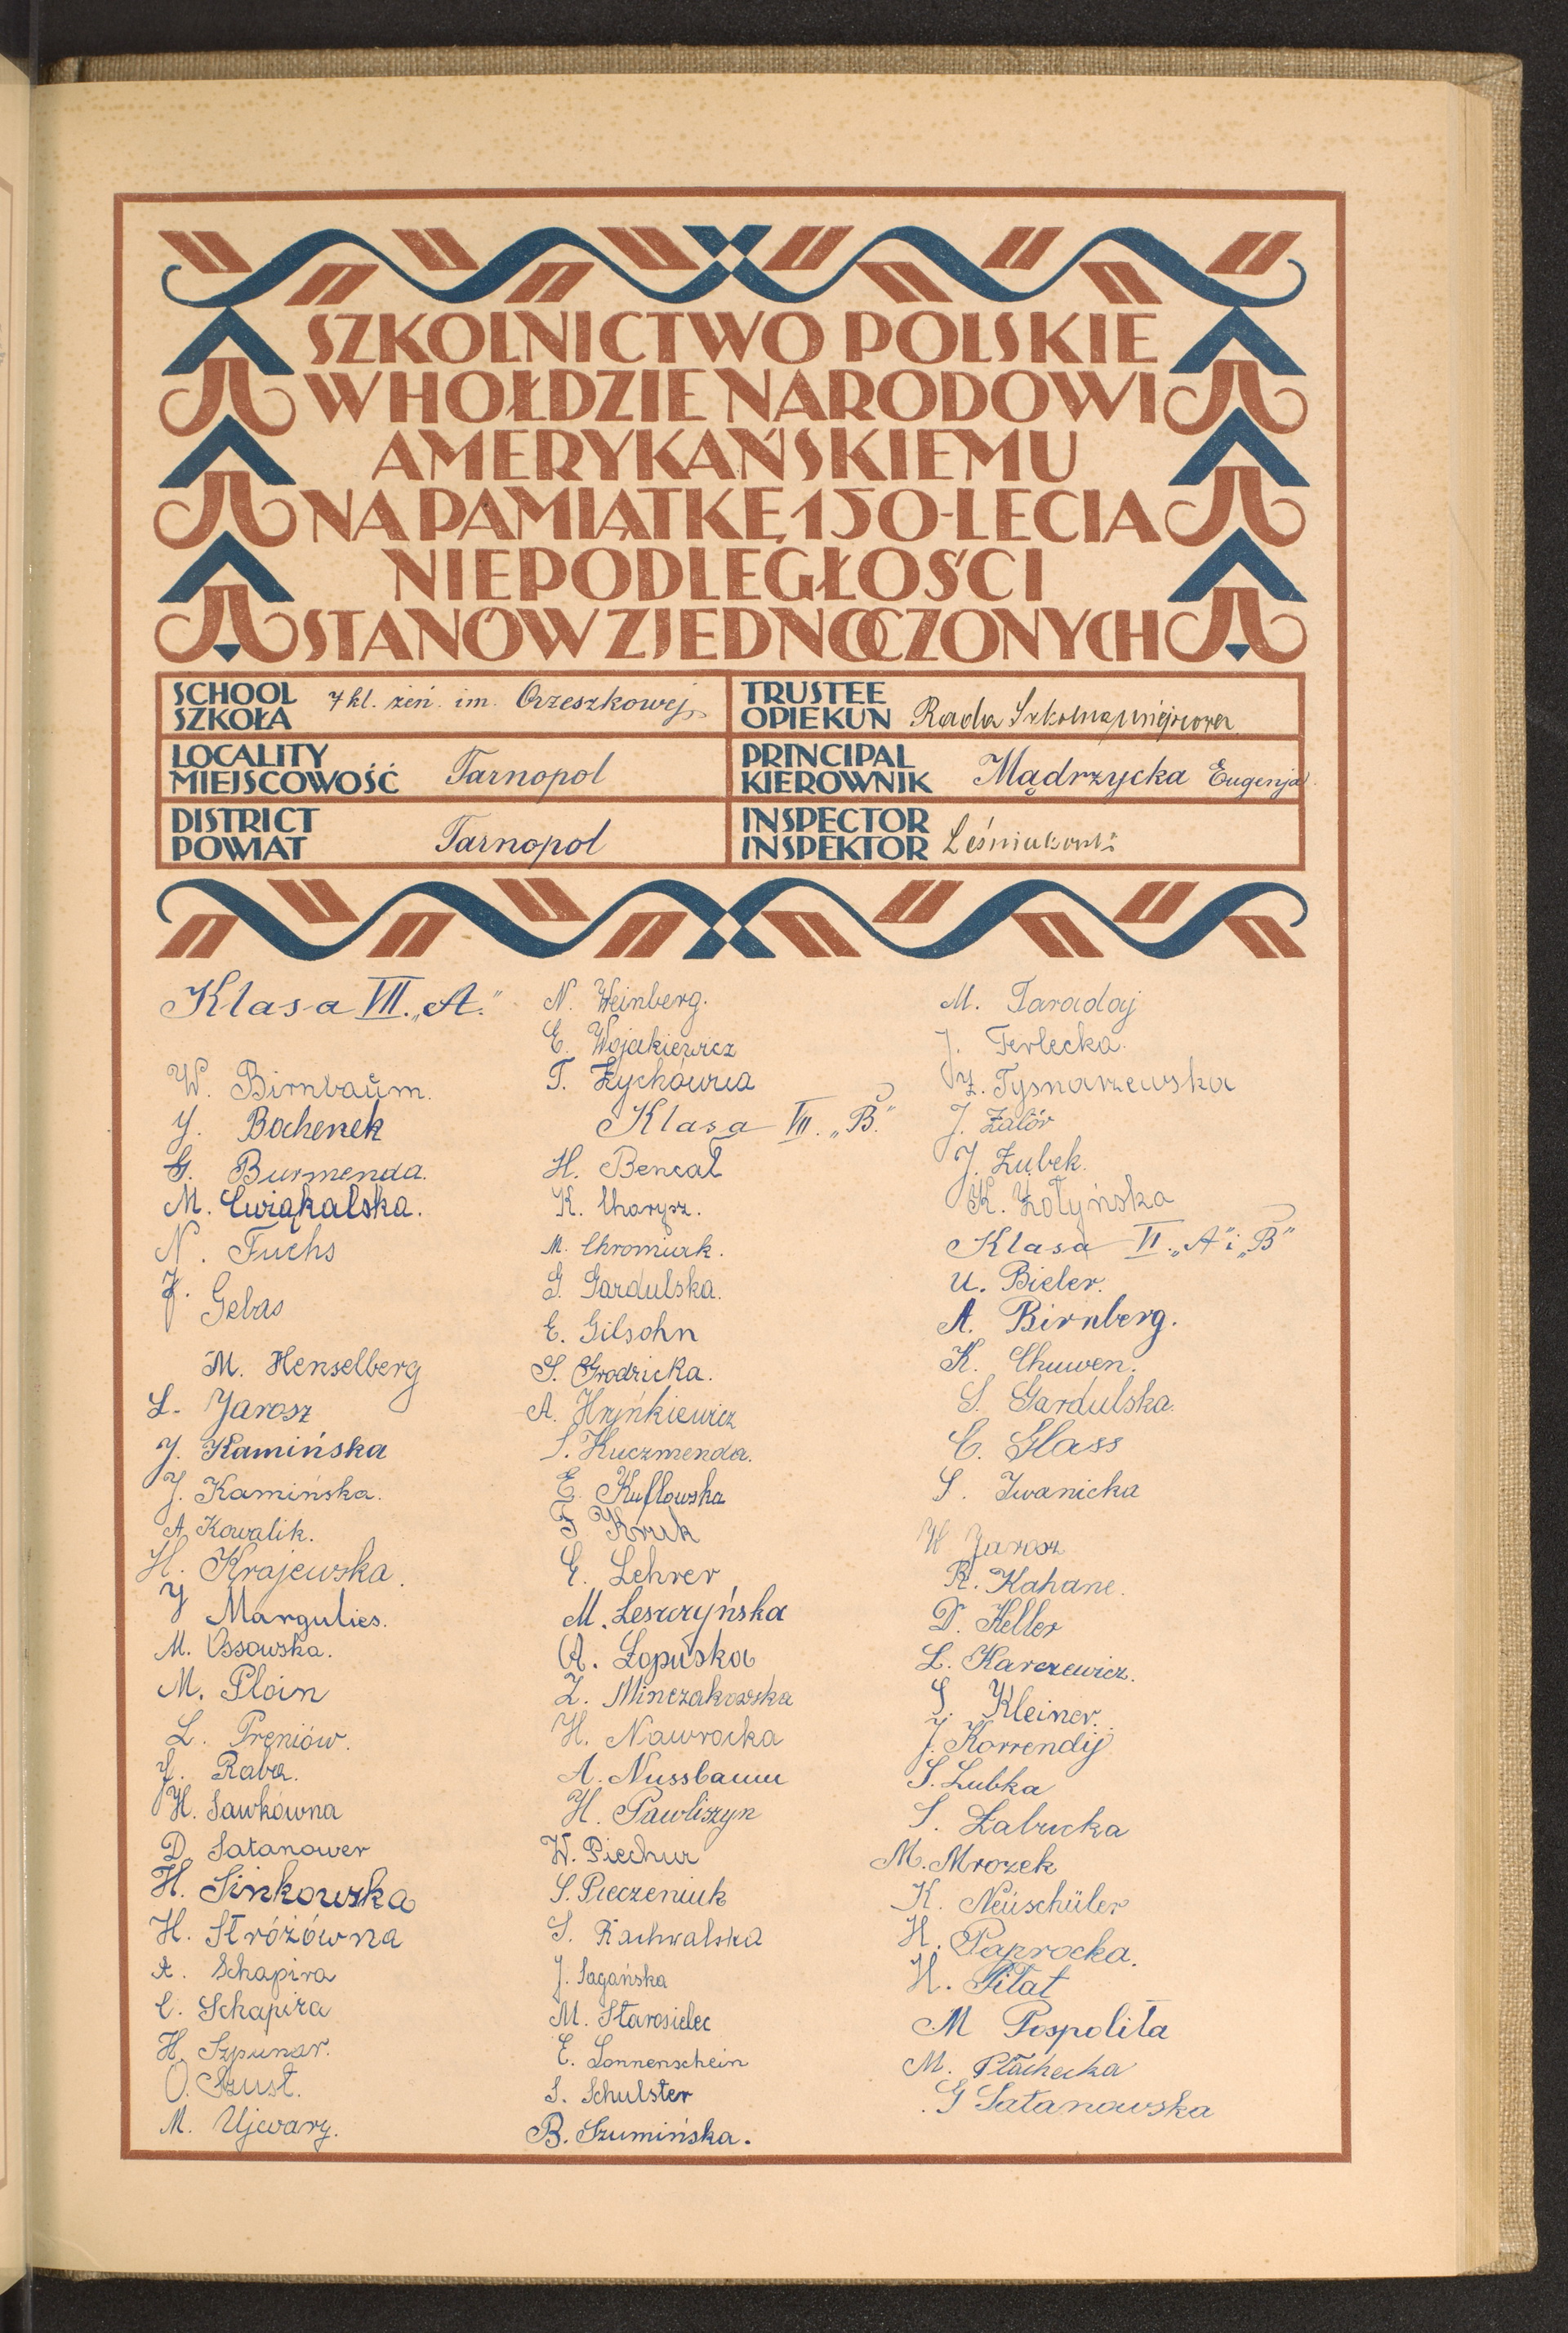 SZKOLNICTWO POLSKIE
W HOŁDZIE NARODOWI
AMERYKAŃSKIEMU
NA PAMIĄTKĘ 150-LECIA
NIEPODLEGŁOŚCI
STANÓW ZJEDNOCZONYCH
SCHOOL
SZKOŁA 7 kl. żeń. im. Orzeszkowej
TRUSTEE
OPIEKUN Rada Szkolna miejscowa
LOCALITY
MIEJSCOWOŚĆ Tarnopol
PRINCIPAL
KIEROWNIK Mądrzycka Eugenja
DISTRICT
POWIAT Tarnopol
INSPECTOR
INSPEKTOR
Klasa VII. „A."
W. Birnbaum.
J. Bochenek
G. Burmenda.
M. Ćwiąkalska.
N. Fuchs
J. Gebas
M. Henselberg
L. Jarosz
J. Kamińska
J. Kamińska.
A. Kowalik.
H. Krajewska.
J Margulies.
M. Ossowska.
M. Ploin
L. Preniów.
J. Raba.
H. Sawkówna
D. Satanower
H. Sinkowska
H. Stróżówna
A. Schapira
C. Schapira
H. Szpunar.
O. Szust.
M. Ujwary.
N. Weinberg.
E. Wojakiewicz
T. Zychówna
Klasa VII. „B."
H. Bencal
K. Charysz.
M. Chromiak.
G. Gardulska.
E. Gilsohn
S. Grodzicka.
A. Hryńkiewicz
S. Kuczmenda.
E. Kuflowska
F Kruk
E. Lehrer
M. Leszczyńska
A. Łopuska
Z. Minczakowska
H. Nawrocka
A. Nussbaum
H. Pawliszyn
W. Piechur
S. Pieczeniuk
S. Rachwalska
J. Sagańska
M. Starosielec
E. Sonnenschein
S. Schulster
B. Szumińska.
M. Taradaj
J. Terlecka.
Z. Tysnarzewska
J. Zatór
J. Zubek.
K. Żołyńska
Klasa VI. „A" i „B"
U. Bieler.
A. Birnberg.
K. Chuwen.
S. Gardulska.
C. Glass
S. Iwanicka
W Jarosz
R. Kahane.
D. Keller
L. Karczewicz.
S. Kleiner.
J. Korrendij
S. Lubka
S. Łabucka
M. Mrozek
K. Neuschüler
H. Paprocka.
H. Piłat
M Pospolita
M. Płachecka
G Satanowska